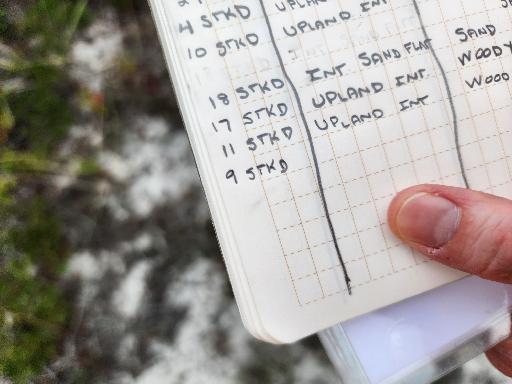 4 STKD UPLAND INT
10 STKD UPLAND INT SAND
18 STKD INT SAND FLAT WOODY
17 STKD UPLAND INT WOOD
11 STKD UPLAND INT
9 STKD